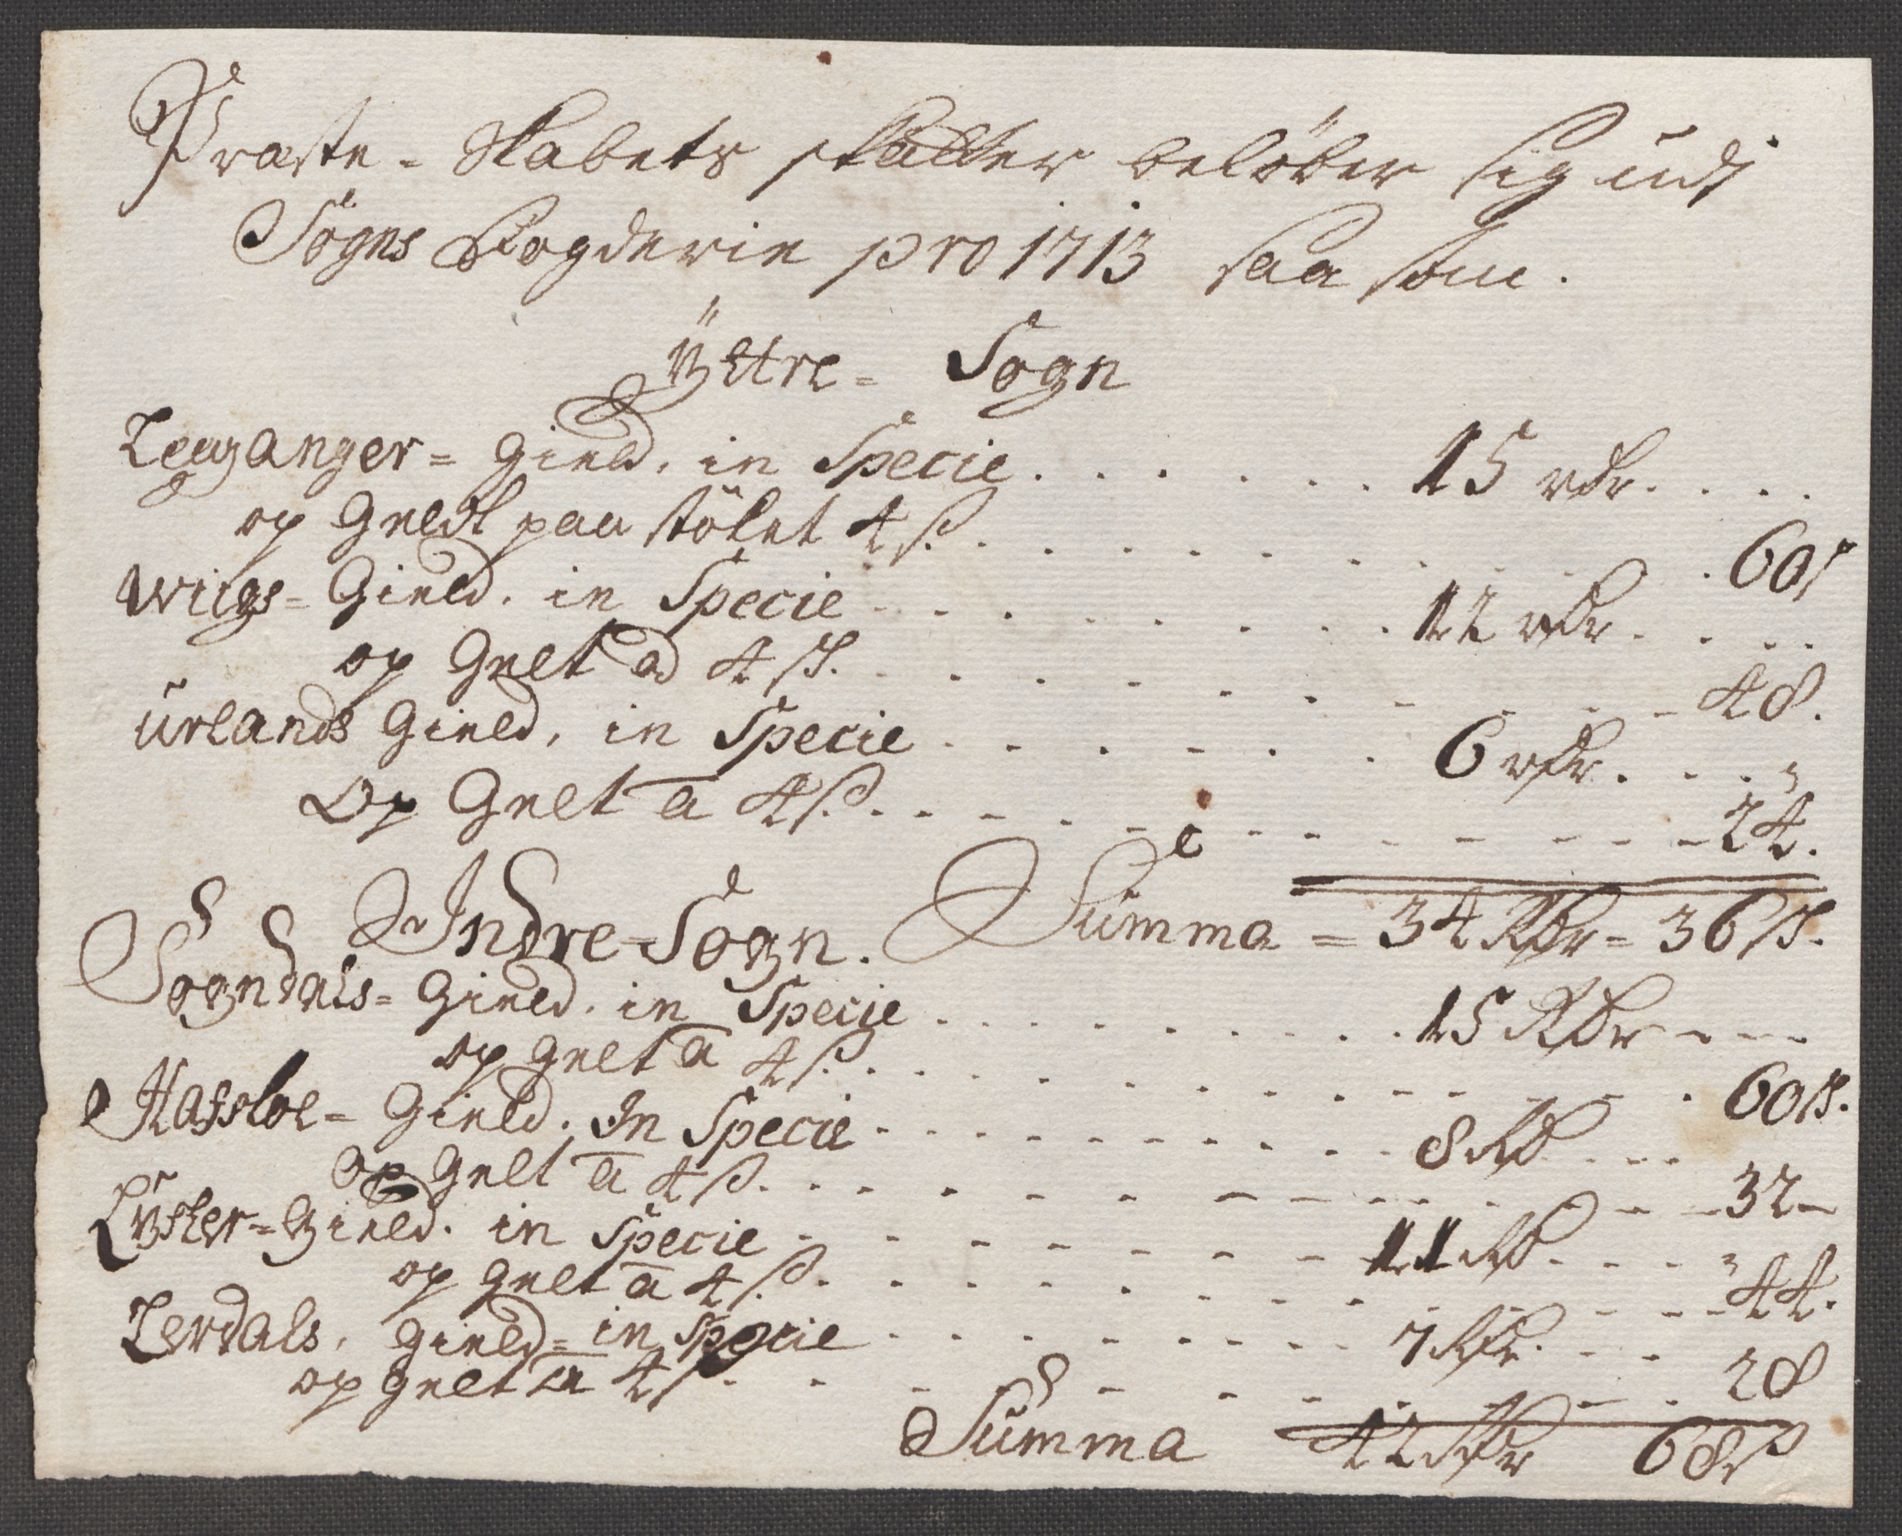 Præste-Skabets skatter beløber sig udj
Sogns Fogderie pro 1713 saa som.
Ÿttre= Sogn
Leyganger= Gield, in Specie . . . . . . 15 rdr. . . .
op Geldt paa stöket 4 ß. . . . . . . . . 60 ß
Wiigs= Gield. in Specie . . . . . . . 12 rdr. . . .
op Gelt a 4 ß. . . . . . . . . 48.
Urlands Gield, in Specie . . . . . . 6 rdr. . . .
Op Gelt a 4 ß. . . . . . . . . 24.
Summa = 34 Rdr = 36 ß.
Indre=Sogn.
Sogndals= Gield. in Specie . . . . . . . 15 Rdr - - -
op gelt a 4 ß. . . . . . . . . 60 ß.
Hafsloe= Gield. In Specie . . . . . . . 8 Rd . . .
op gelt a 4 ß. . . . . . . . . 32 -
Lyster=Gield. in Specie . . . . . . . 11 Rd. . . .
op gelt a 4 ß. . . . . . . . . 44.
Lerdals, gield= in Specie . . . . . . . 7 Rdr. . . .
op gelt a 4 ß. . . . . . . . . 28
Summa 42 Rdr 68 ß